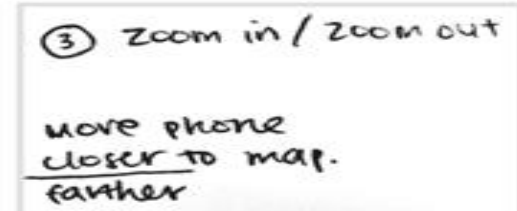 ③ zoom in / zoom out
move phone
closer to map.
farther